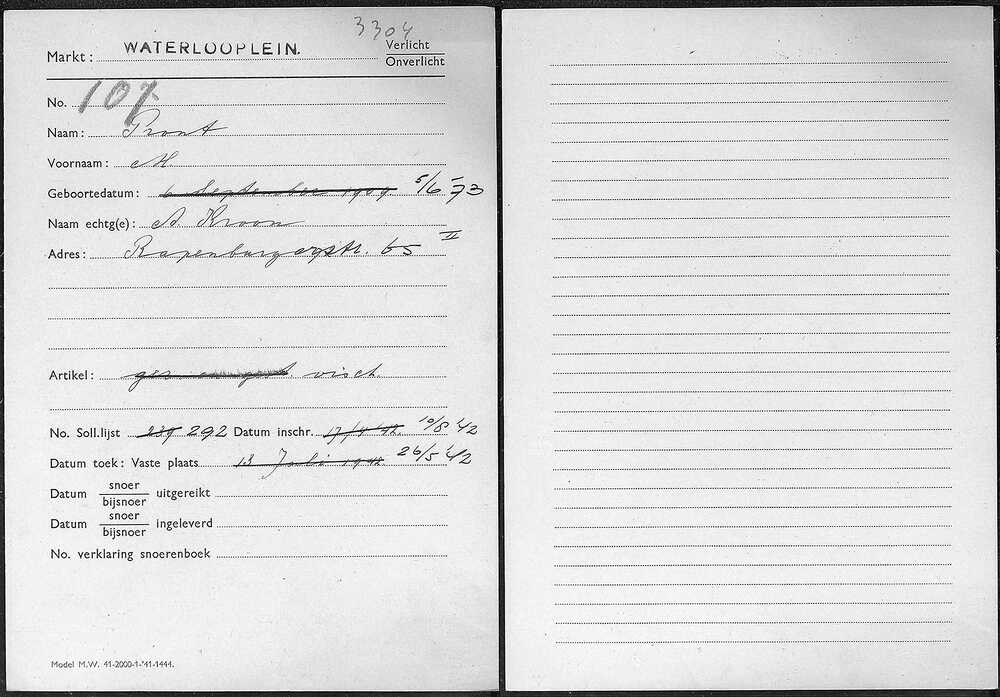 3304
Markt: WATERLOOPLEIN. Verlicht
Onverlicht
No. 107
Naam: Pront
Voornaam: M.
Geboortedatum: 6 September 1909 5/6 '73
Naam echtg(e): A. Kroon
Adres: Rapenburgerstr. 65 II
Artikel: visch.
No. Soll.lijst 239 292 Datum inschr. 17/4 '42. 10/8 '42
Datum toek: Vaste plaats 13 Juli 1942 26/5 '42
Datum snoer
bijsnoer uitgereikt
Datum snoer
bijsnoer ingeleverd
No. verklaring snoerenboek
Model M.W. 41-2000-1-'41-1444.